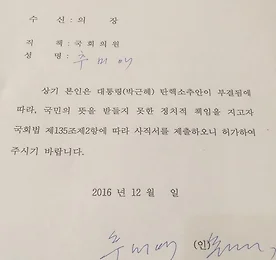 수 신 : 의 장
직 책 : 국회의원
성 명 : 추미애
상기 본인은 대통령(박근혜) 탄핵소추안이 부결됨에
따라, 국민의 뜻을 받들지 못한 정치적 책임을 지고자
국회법 제135조제2항에 따라 사직서를 제출하오니 허가하여
주시기 바랍니다.
2016 년 12 월 일
추미애 (인)